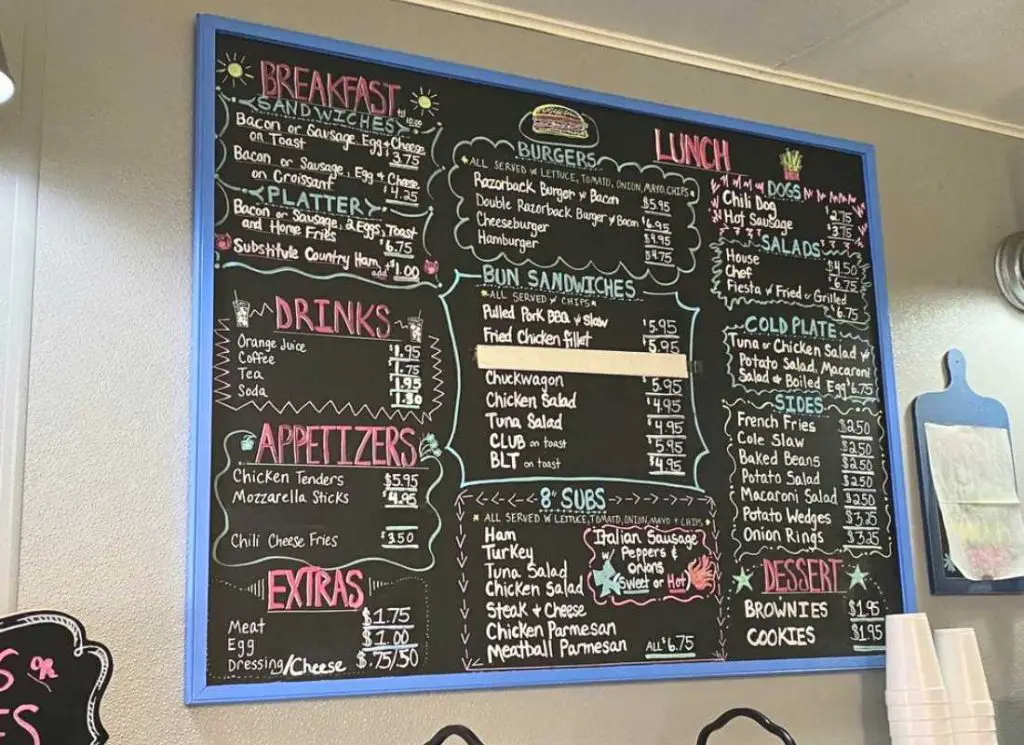 BREAKFAST
till 10:00
SANDWICHES
Bacon or Sausage, Egg & Cheese
on Toast $3.75
Bacon or Sausage, Egg & Cheese
on Croissant $4.25
PLATTER
Bacon or Sausage, 2 Eggs, Toast
and Home Fries $6.75
Substitute Country Ham add $1.00
DRINKS
Orange Juice $1.95
Coffee $1.75
Tea $1.95
Soda
APPETIZERS
Chicken Tenders $5.95
Mozzarella Sticks $4.95
Chili Cheese Fries $3.50
EXTRAS
Meat $1.75
Egg $1.00
Dressing/Cheese $.75/50
LUNCH
BURGERS
*ALL SERVED W LETTUCE, TOMATO, ONION, MAYO, CHIPS*
Razorback Burger w Bacon $5.95
Double Razorback Burger w Bacon $6.95
Cheeseburger $4.95
Hamburger $4.75
BUN SANDWICHES
*ALL SERVED W CHIPS*
Pulled Pork BBQ w Slaw $5.95
Fried Chicken fillet $5.95
Chuckwagon $5.95
Chicken Salad $4.95
Tuna Salad $4.95
CLUB on toast $5.95
BLT on toast $4.95
8" SUBS
* ALL SERVED W LETTUCE, TOMATO, ONION, MAYO & CHIPS *
Ham
Turkey
Tuna Salad
Chicken Salad
Steak & Cheese
Chicken Parmesan
Meatball Parmesan ALL $6.75
Italian Sausage
w/ Peppers &
Onions
Sweet or Hot
DOGS
Chili Dog $2.75
Hot Sausage $3.75
SALADS
House $4.50
Chef $6.75
Fiesta w Fried or Grilled
$6.75
COLD PLATE
Tuna or Chicken Salad w
Potato Salad, Macaroni
Salad & Boiled Egg $6.75
SIDES
French Fries $2.50
Cole Slaw $2.50
Baked Beans $2.50
Potato Salad $2.50
Macaroni Salad $2.50
Potato Wedges $3.25
Onion Rings $3.25
DESSERT
BROWNIES $1.95
COOKIES $1.95
OR